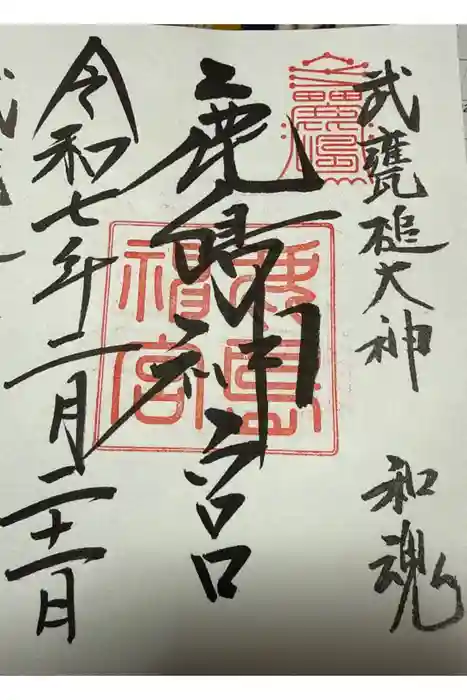 武甕槌大神 和魂
鹿島神宮
鹿島神宮
令和七年二月二十一日